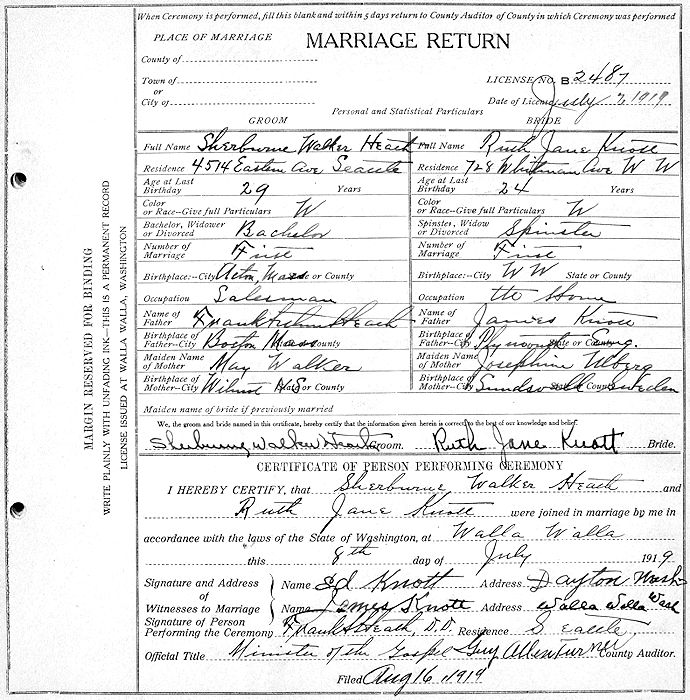 When Ceremony is performed, fill this blank and within 5 days return to County Auditor of County in which Ceremony was performed
PLACE OF MARRIAGE
MARRIAGE RETURN
County of
Town of
or
City of
LICENSE NO. B 2487
Date of License July 2, 1919
Personal and Statistical Particulars
GROOM BRIDE
Full Name Sherburne Walker Heath Full Name Ruth Jane Knott
Residence 4514 Eastern Ave Seattle Residence 728 Whitman Ave W W
Age at Last Birthday 29 Years Age at Last Birthday 24 Years
Color or Race—Give full Particulars W Color or Race—Give full Particulars W
Bachelor, Widower or Divorced Bachelor Spinster, Widow or Divorced Spinster
Number of Marriage First Number of Marriage First
Birthplace:—City Acton, Mass State or County Birthplace:—City W W State or County
Occupation Salesman Occupation At Home
Name of Father Frank Heath Name of Father James Knott
Birthplace of Father—City Boston Mass Birthplace of Father—City Plymouth State or County Eng.
Maiden Name of Mother May Walker Maiden Name of Mother Josephine Ulberg
Birthplace of Mother—City Wilmot State or County Birthplace of Mother—City Sundsvall State or County Sweden
Maiden name of bride if previously married
We, the groom and bride named in this certificate, hereby certify that the information given herein is correct to the best of our knowledge and belief.
Sherburne Walker Heath Groom. Ruth Jane Knott Bride.
CERTIFICATE OF PERSON PERFORMING CEREMONY
I HEREBY CERTIFY, that Sherburne Walker Heath and
Ruth Jane Knott were joined in marriage by me in
accordance with the laws of the State of Washington, at Walla Walla
this 8th day of July 1919
Signature and Address of Witnesses to Marriage
Name Ed Knott Address Dayton Wash
Name James Knott Address Walla Walla Wash
Signature of Person Performing the Ceremony Frank Heath, D.D. Residence Seattle
Official Title Minister of the Gospel Guy Allen Turner County Auditor.
Filed Aug 16, 1919
MARGIN RESERVED FOR BINDING
WRITE PLAINLY WITH UNFADING INK—THIS IS A PERMANENT RECORD
LICENSE ISSUED AT WALLA WALLA, WASHINGTON